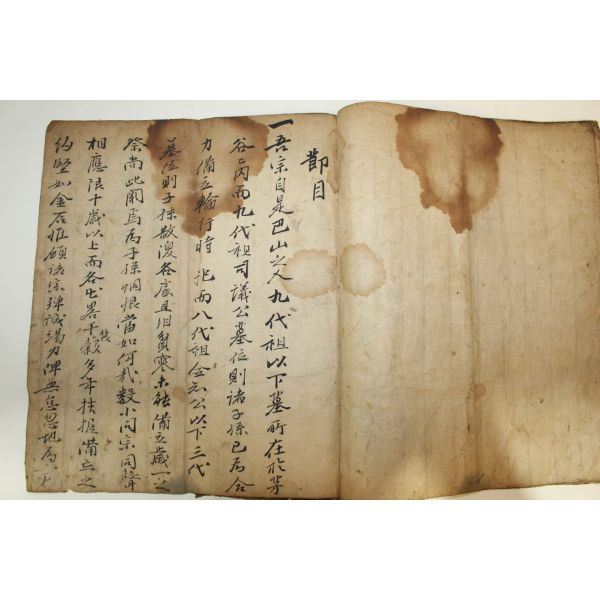 節目
一吾宗自是巴山之人九代祖以下墓所在於茅
谷而九代祖司議公墓位則諸子孫已爲合
力備立輪行時祀而八代祖公以下三代
墓位則子孫散漫各處且汨貧寒未能備立歲一之
祭尚此闕焉爲子孫悶恨當如何哉數小同宗同聲
相應限十歲以上而各出畧干錢穀多年拮据備立之
約堅如金石惟願諸宗殫誠竭力俾無怠忽地爲